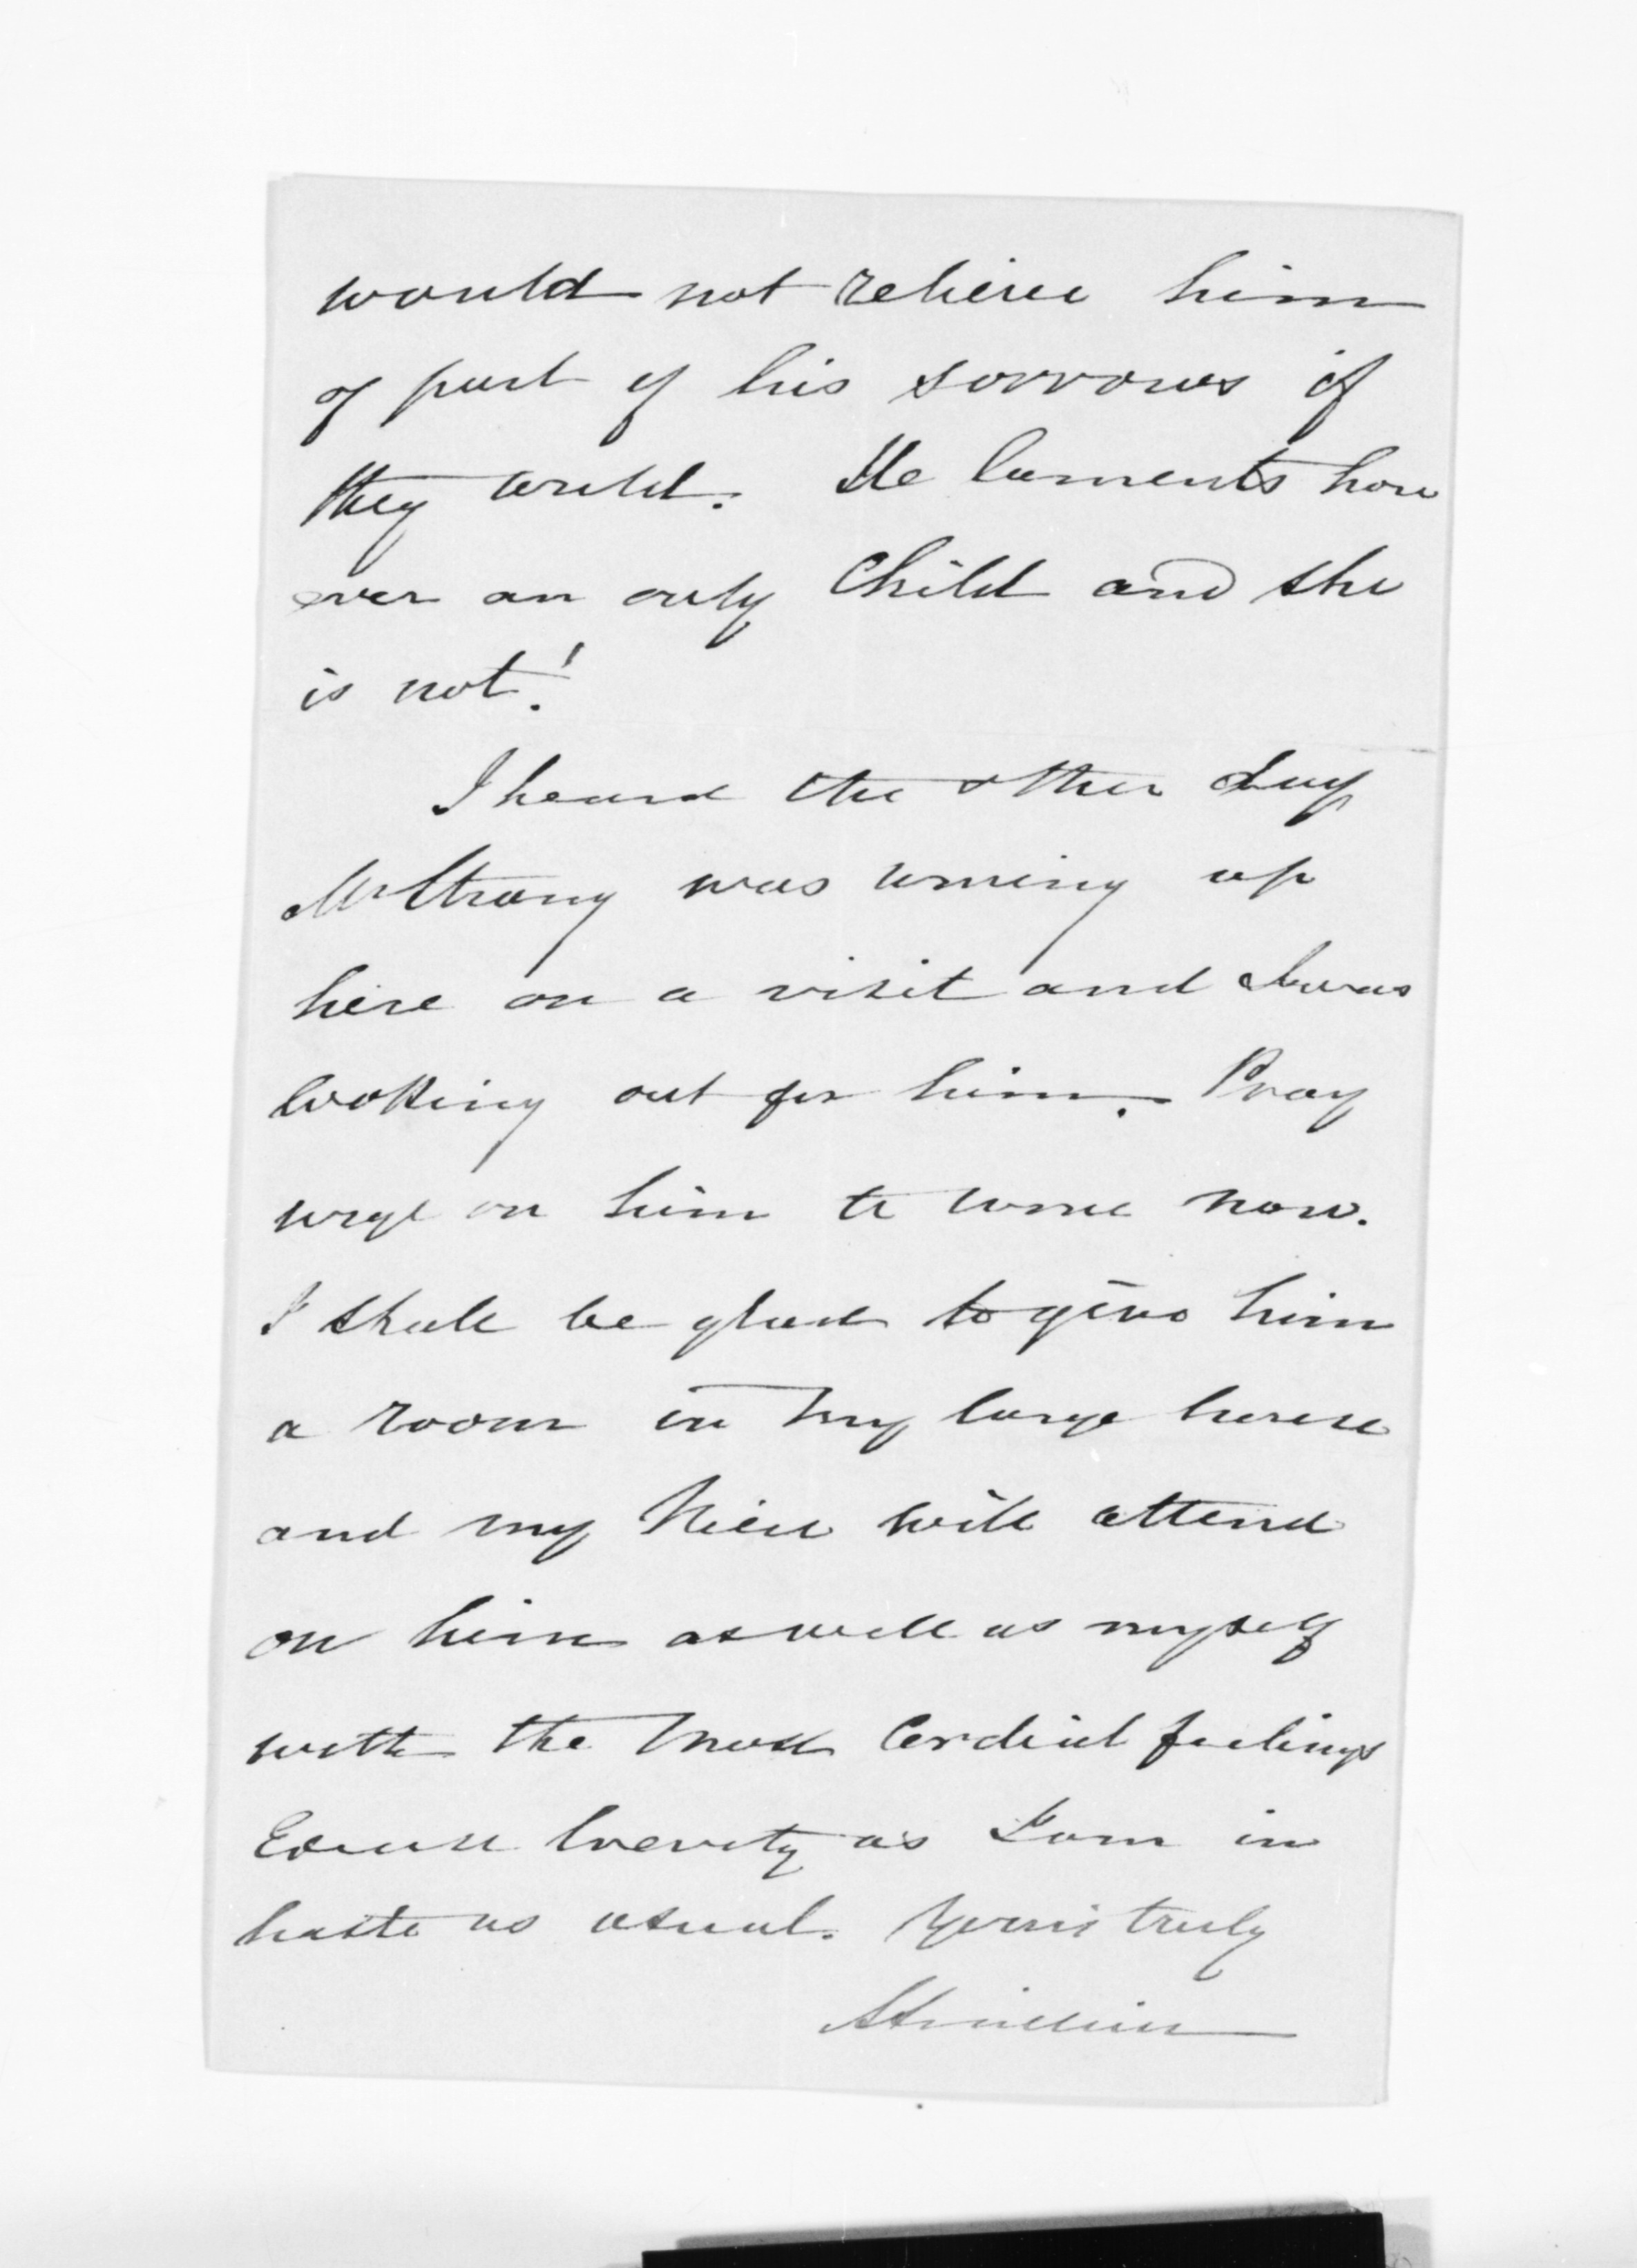 would not relieve him
of part of his sorrows if
they could. He laments how
ever an only Child and she
is not!
I heard the other day
Mr Strong was coming up
here on a visit and I was
looking out for him. Pray
urge on him to come now.
I shall be glad to give him
a room in my large house
and my Niece will attend
on him as well as myself
with the most Cordial feelings
Excuse brevity as I am in
haste as usual. Yours truly